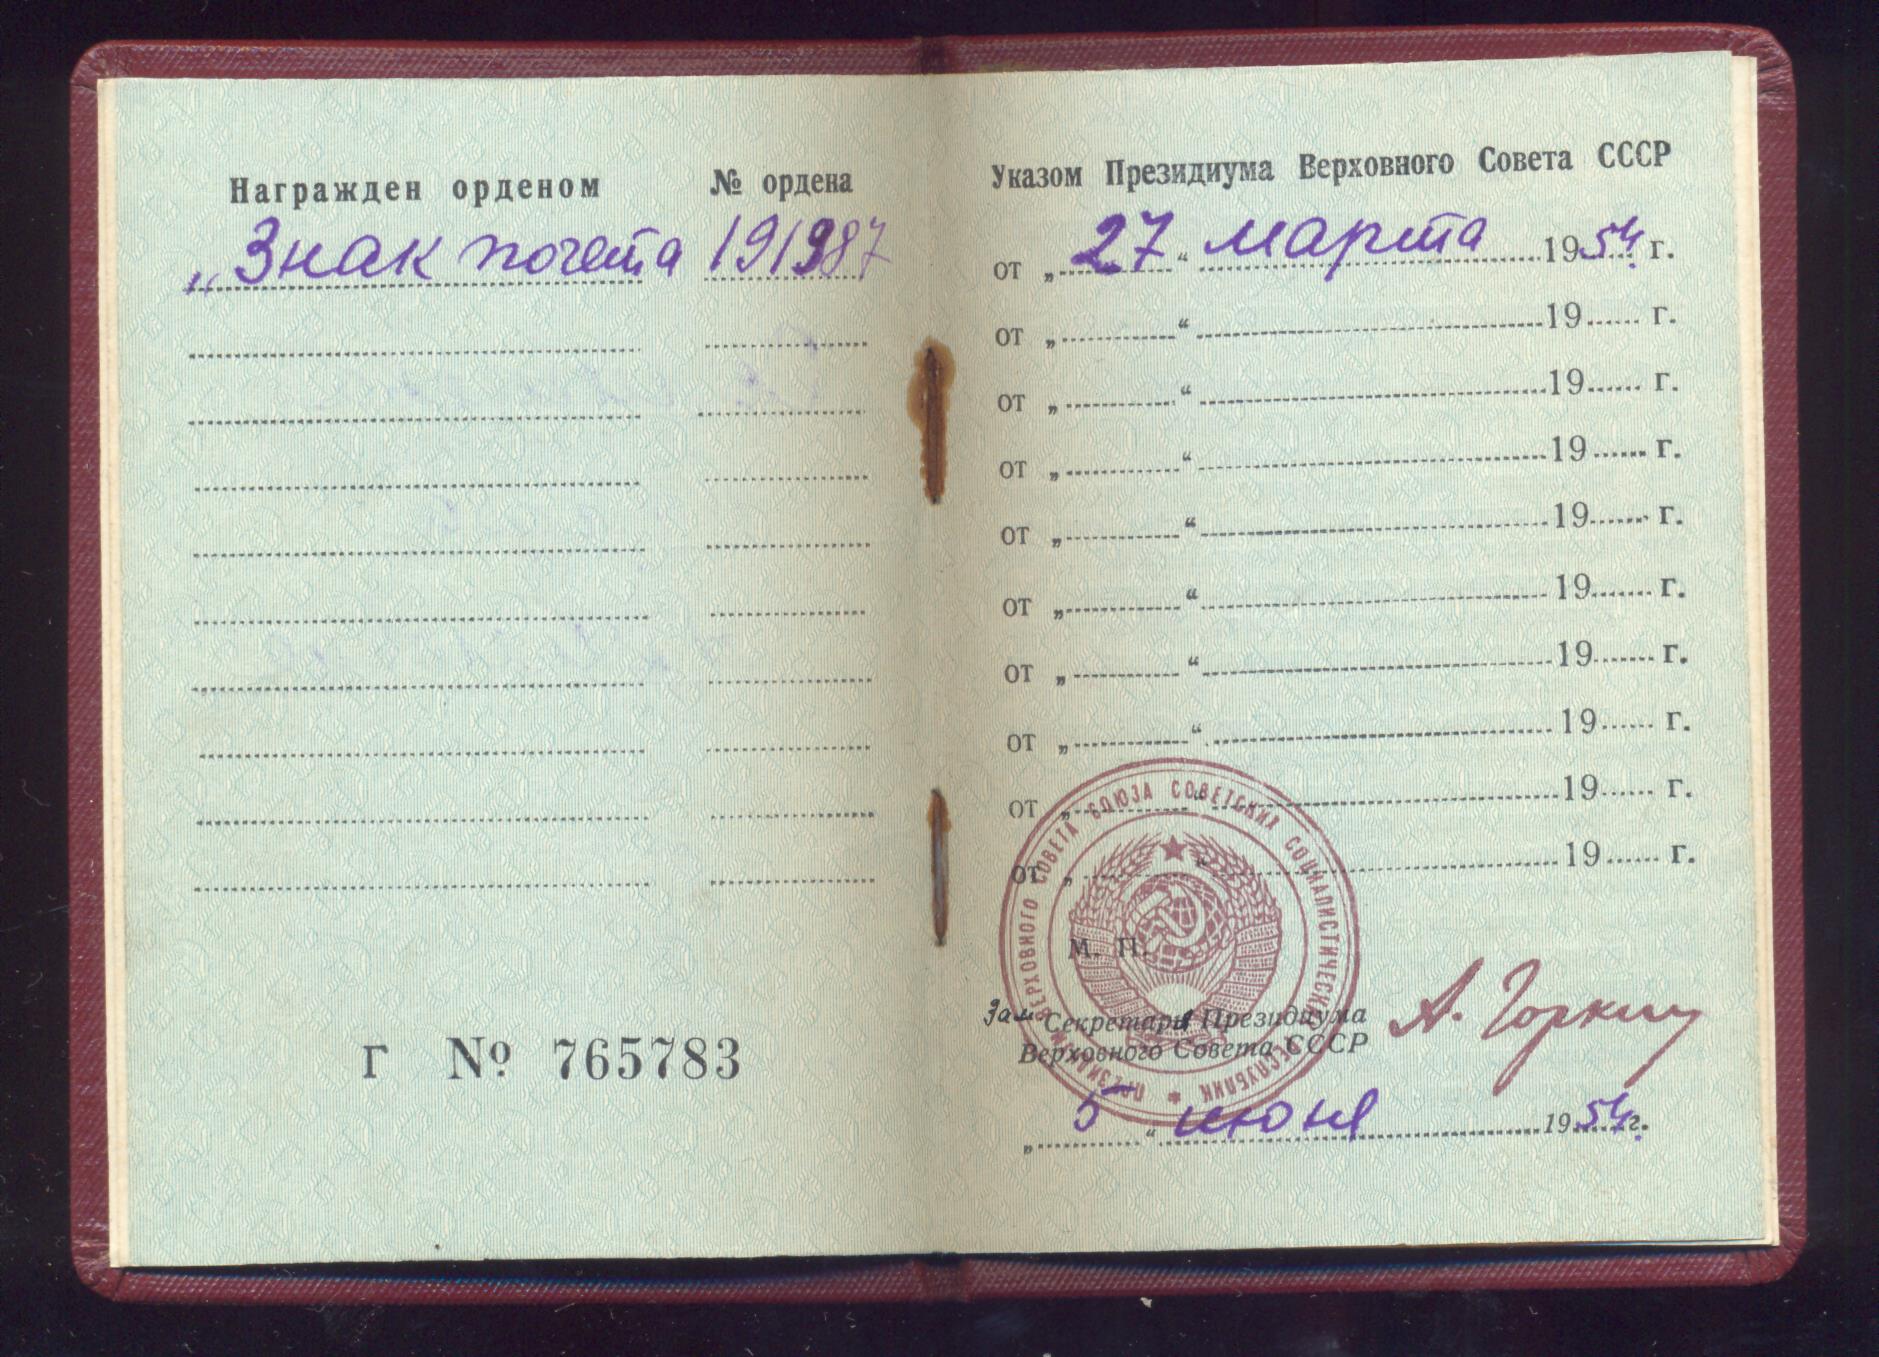 Награжден орденом № ордена
„Знак почета 191987
Г № 765783
Указом Президиума Верховного Совета СССР
от „27“ марта 1954 г.
от „ “ 19 г.
от „ “ 19 г.
от „ “ 19 г.
от „ “ 19 г.
от „ “ 19 г.
от „ “ 19 г.
от „ “ 19 г.
от „ “ 19 г.
от „ “ 19 г.
ПРЕЗИДИУМ ВЕРХОВНОГО СОВЕТА СОЮЗА СОВЕТСКИХ СОЦИАЛИСТИЧЕСКИХ РЕСПУБЛИК
М. П.
Зам Секретаря Президиума
Верховного Совета СССР
А. Горкин
„5“ июня 1954 г.